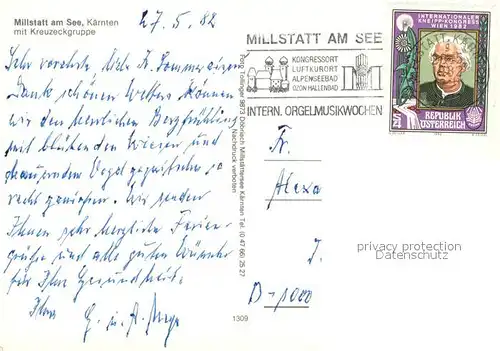 Millstatt am See, Kärnten
mit Kreuzeckgruppe
27.5.82
Sehr verehrte liebe Fr.
Dank schönen Wetters können
wir den herrlichen Bergfrühling
mit blühenden Wiesen und
so
recht genießen. Wir senden
Ihnen sehr herzliche Ferien-
grüße und alle guten Wünsche
für Ihre Gesundheit.
Ihre
G. u. A.
MILLSTATT AM SEE
KONGRESSORT
LUFTKURORT
ALPENSEEBAD
OZON HALLENBAD
INTERN. ORGELMUSIKWOCHEN
INTERNATIONALER
KNEIPP-KONGRESS
WIEN 1982
S4
REPUBLIK
ÖSTERREICH
Foto Tollinger 9873 Döbriach Millstättersee Kärnten Tel. (0 47 66) 25 27
Nachdruck verboten
Fr.
Alexa
D-1000
privacy protection
Datenschutz
1309